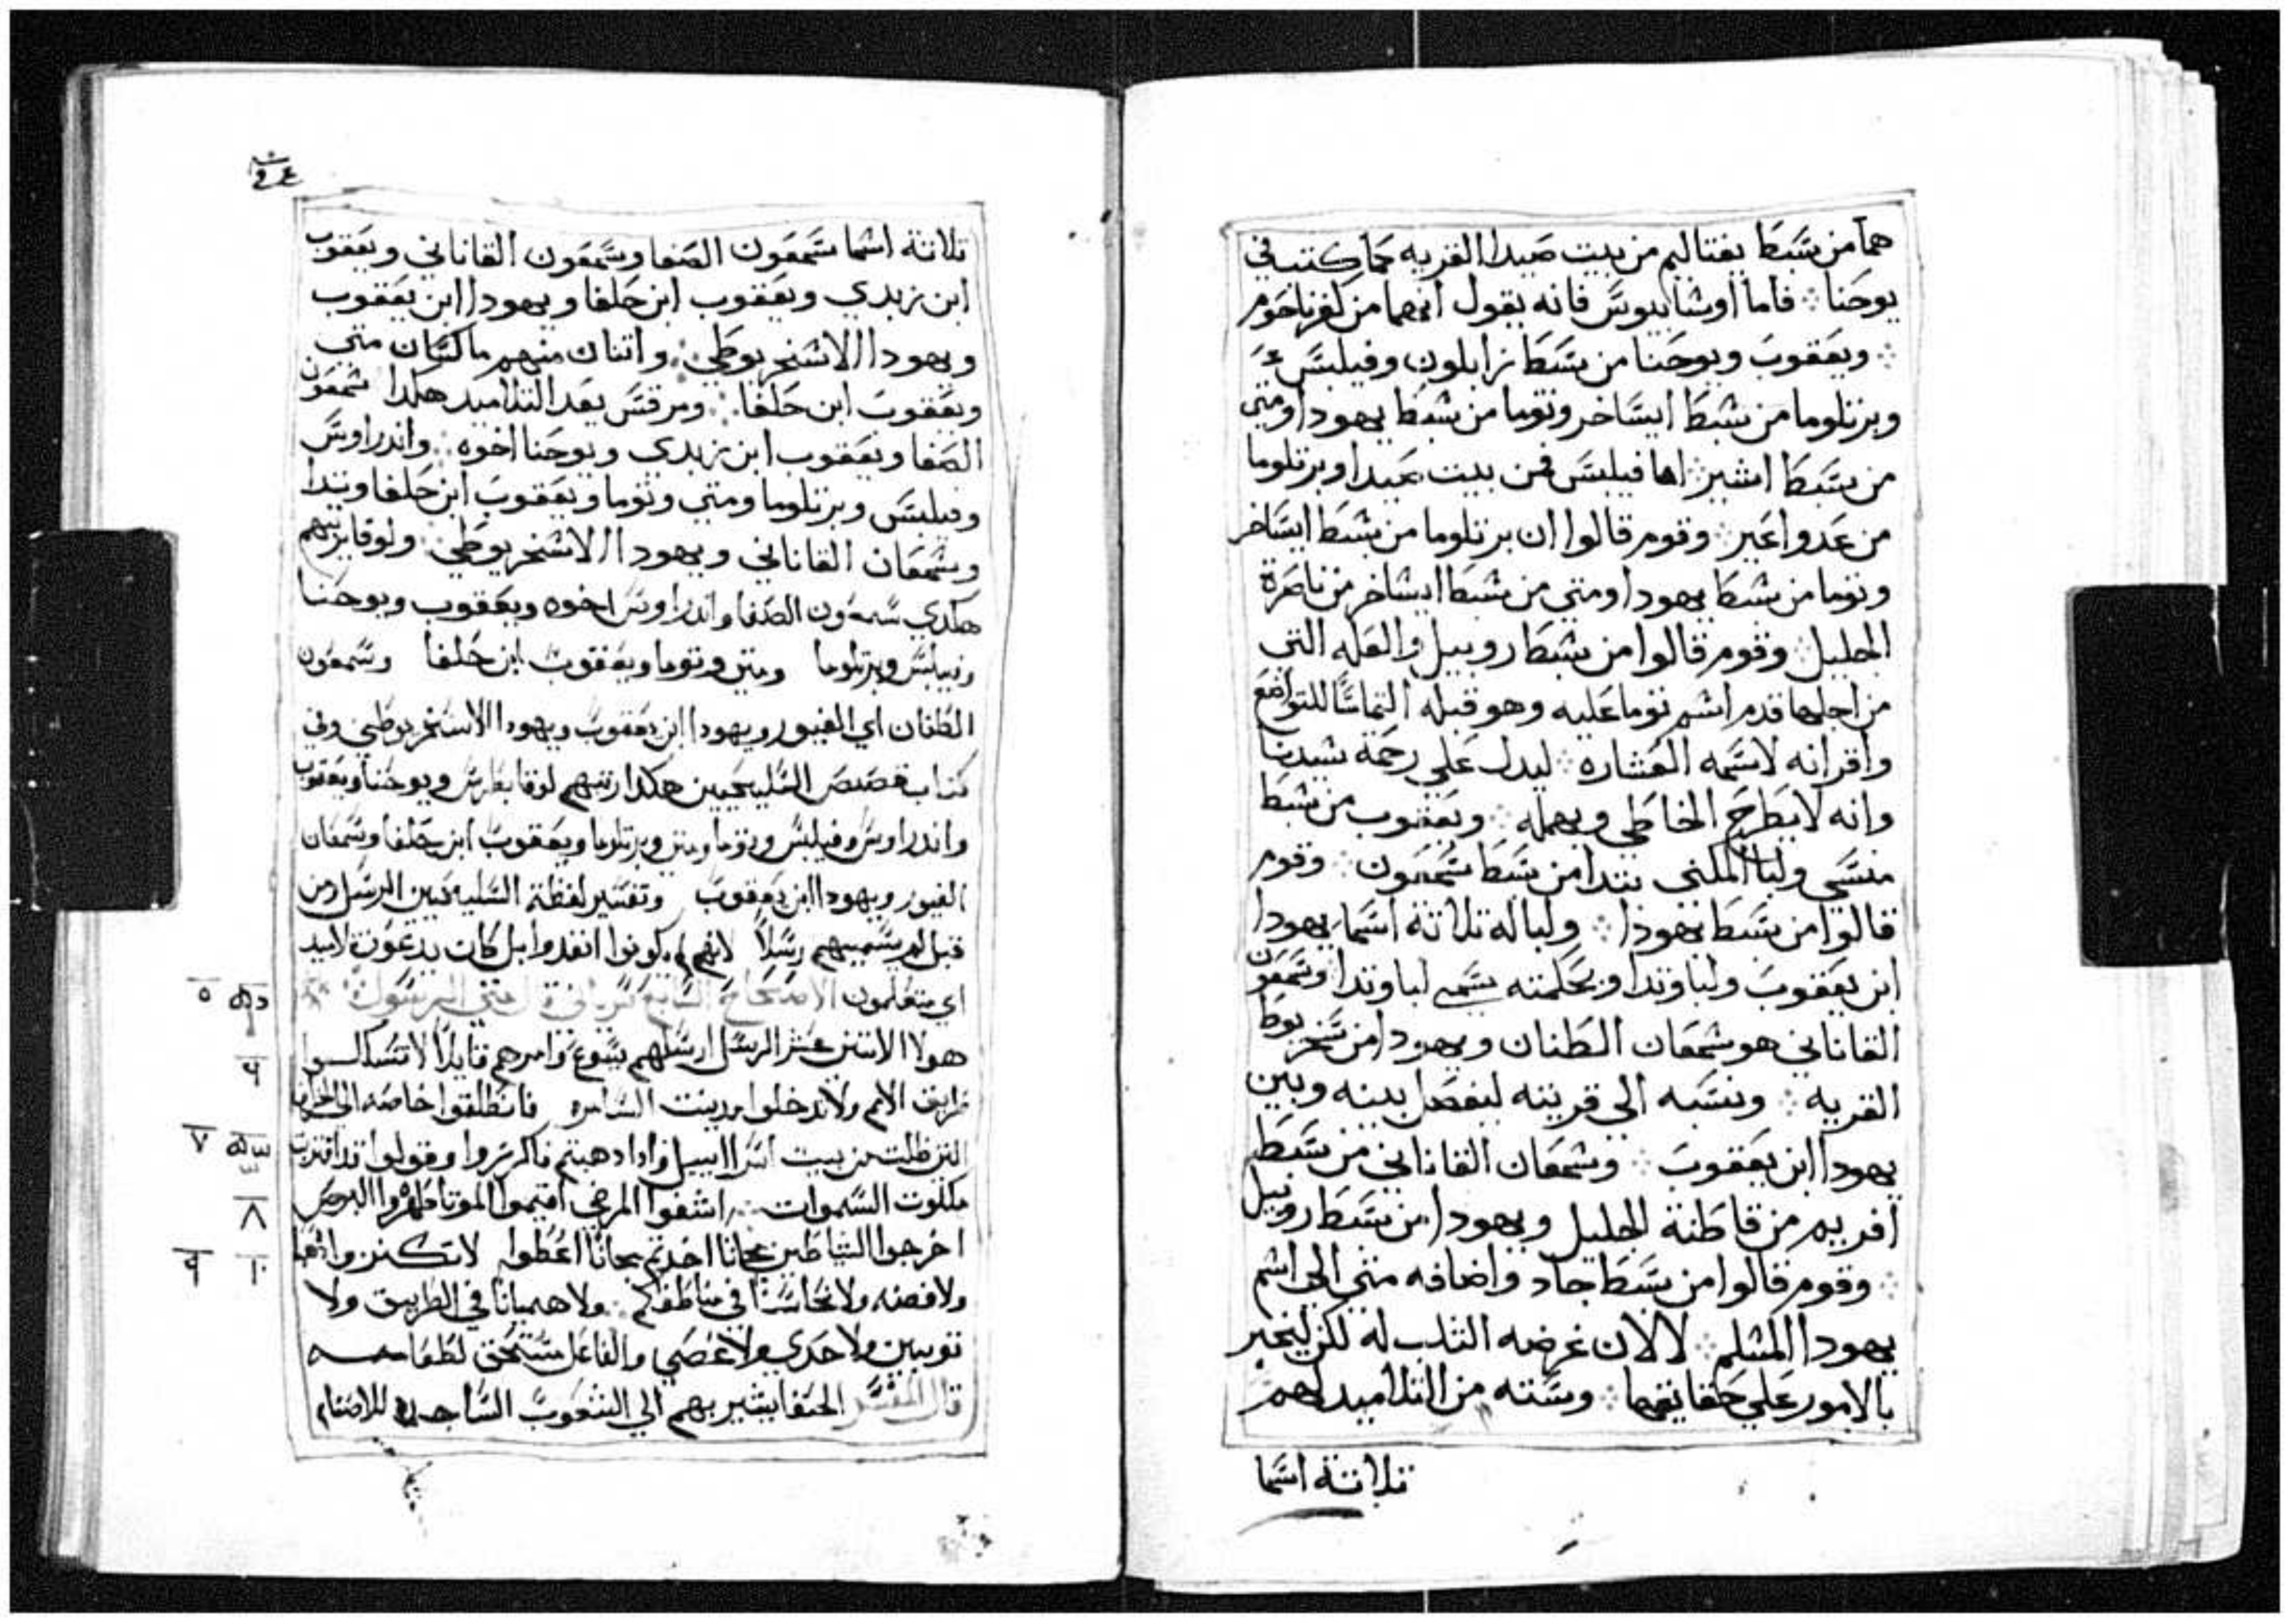 هما من سبط يفتاليم من بيت صيدا القريه كما كتب في
يوحنا ∴ فاما اوسابيوس فانه يقول انهما من كفرناحوم
∴ ويعقوب ويوحنا من سبط زابلون وفيلبس
وبرتلوما من سبط ايساخر وتوما من سبط يهودا ومتي
من سبط اشير ∴ اما فيلبس فمن بيت صيدا وبرتلوما
من عدوا عير ∴ وقوم قالوا ان برتلوما من سبط ايساخر
وتوما من سبط يهودا ومتي من سبط ايساخر من ناصرة
الجليل ∴ وقوم قالوا من سبط روبيل والعله التي
من اجلها قدم اسم توما عليه وهو قبله التماسًا للتواضع
واقرانه لاسمه العشاره ∴ ليدل علي رحمة سيدنا
وانه لا يطرح الخاطي ويهمله ∴ ويعقوب من سبط
منسي ولبا الملني تدا من سبط شمعون ∴ وقوم
قالوا من سبط يهودا ∴ ولبا له تلاتة اسما يهودا
ابن يعقوب ولبا وتدا وبحكمته سمي لبا وتدا وشمعون
القاناني هو شمعان الطنان ويهودا من سخريوط
القريه ∴ ونسبه الي قريته ليفصل بينه وبين
يهودا ابن يعقوب ∴ وشمعان القاناني من سبط
افريم من قاطنة الجليل ويهودا من سبط روبيل
∴ وقوم قالوا من سبط جاد واضافه متي الي اسم
يهودا المسلم ∴ لا لان غرضه التلب له لكن ليخبر
بالامور علي حقايقها ∴ وسته من التلاميد لهم
تلاتة اسما
تلاتة اسما شمعون الصفا وشمعون القاناني ويعقوب
ابن زبدي ويعقوب ابن حلفا ويهودا ابن يعقوب
ويهودا الاسخريوطي ∴ واتنان منهم ماكسان متي
ويعقوب ابن حلفا ∴ ومرقس يعد التلاميد هكدا شمعون
الصفا ويعقوب ابن زبدي ويوحنا اخوه ∴ واندراوس
وفيلبس وبرتلوما ومتي وتوما ويعقوب ابن حلفا وتدا
وشمعان القاناني ويهودا الاسخريوطي ∴ ولوقا يرتبهم
هكدي شمعون الصفا واندراوس اخوه ويعقوب ويوحنا
وفيلبس وبرتلوما ومتي وتوما ويعقوب ابن حلفا وشمعون
الطنان اي الغيور ويهودا ابن يعقوب ويهودا الاسخريوطي وفي
كتاب قصص السليحيين هكدا رتبهم لوقا بطرس ويوحنا ويعقوب
واندراوس وفيلبس وتوما ومتي وبرتلوما ويعقوب ابن حلفا وشمعان
الغيور ويهودا ابن يعقوب وتفسير لفظة السليحيين الرسل ومن
قبل لم يسميهم رسلًا لانهم لم يكونوا انفدوا بل كان يدعون تلاميد
اي متعلمون الاصحاح السابع متي الرسول
هولا الاتني عشر الرسل ارسلهم يسوع وامرهم قايلًا لا تسلكوا
طريق الامم ولا تدخلوا مدينت السامره فانطلقوا خاصه الي الخراف
التي ظلت من بيت اسراييل وادا دهبتم فاكرزوا وقولوا قد اقتربت
ملكوت السموات ∴ اشفوا المرضي اقيموا الموتا طهروا البرص
اخرجوا الشياطين مجانا اخدتم مجانًا اعطوا لا تكنزوا دهبا
ولا فضه ولا نحاسًا في مناطقكم ∴ ولا هميانا في الطريق ولا
توبين ولا حدي ولا عصي والفاعل مستحق لطعامه
قال المفسر الحنفا يشير بهم الي الشعوب الساجده للاصنام
٥
٦
٧
٨
٩ ١٠